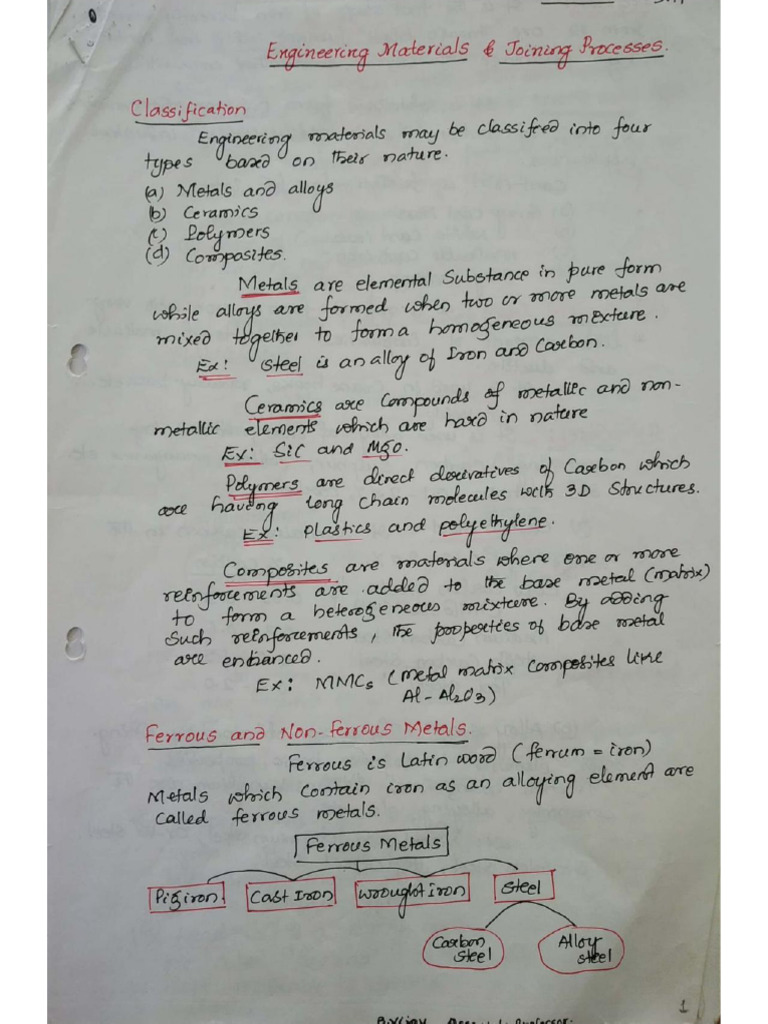 Engineering Materials & Joining Processes.
Classification
Engineering materials may be classified into four
types based on their nature.
(a) Metals and alloys
(b) Ceramics
(c) Polymers
(d) Composites.
Metals are elemental Substance in pure form
while alloys are formed when two or more metals are
mixed together to form a homogeneous mixture.
Ex: Steel is an alloy of Iron and Carbon.
Ceramics are Compounds of metallic and non-
metallic elements which are hard in nature
Ex: SiC and MgO.
Polymers are direct derivatives of Carbon which
are having long chain molecules with 3D Structures.
Ex: plastics and polyethylene.
Composites are materials where one or more
reinforcements are added to the base metal (matrix)
to form a heterogeneous mixture. By adding
Such reinforcements, the properties of base metal
are enhanced.
Ex: MMCs (metal matrix composites like
Al-Al2O3)
Ferrous and Non-ferrous Metals.
Ferrous is Latin word (ferrum = iron)
Metals which contain iron as an alloying element are
called ferrous metals.
Ferrous Metals
Pig iron Cast Iron Wrought Iron Steel
Carbon Alloy
steel steel
1